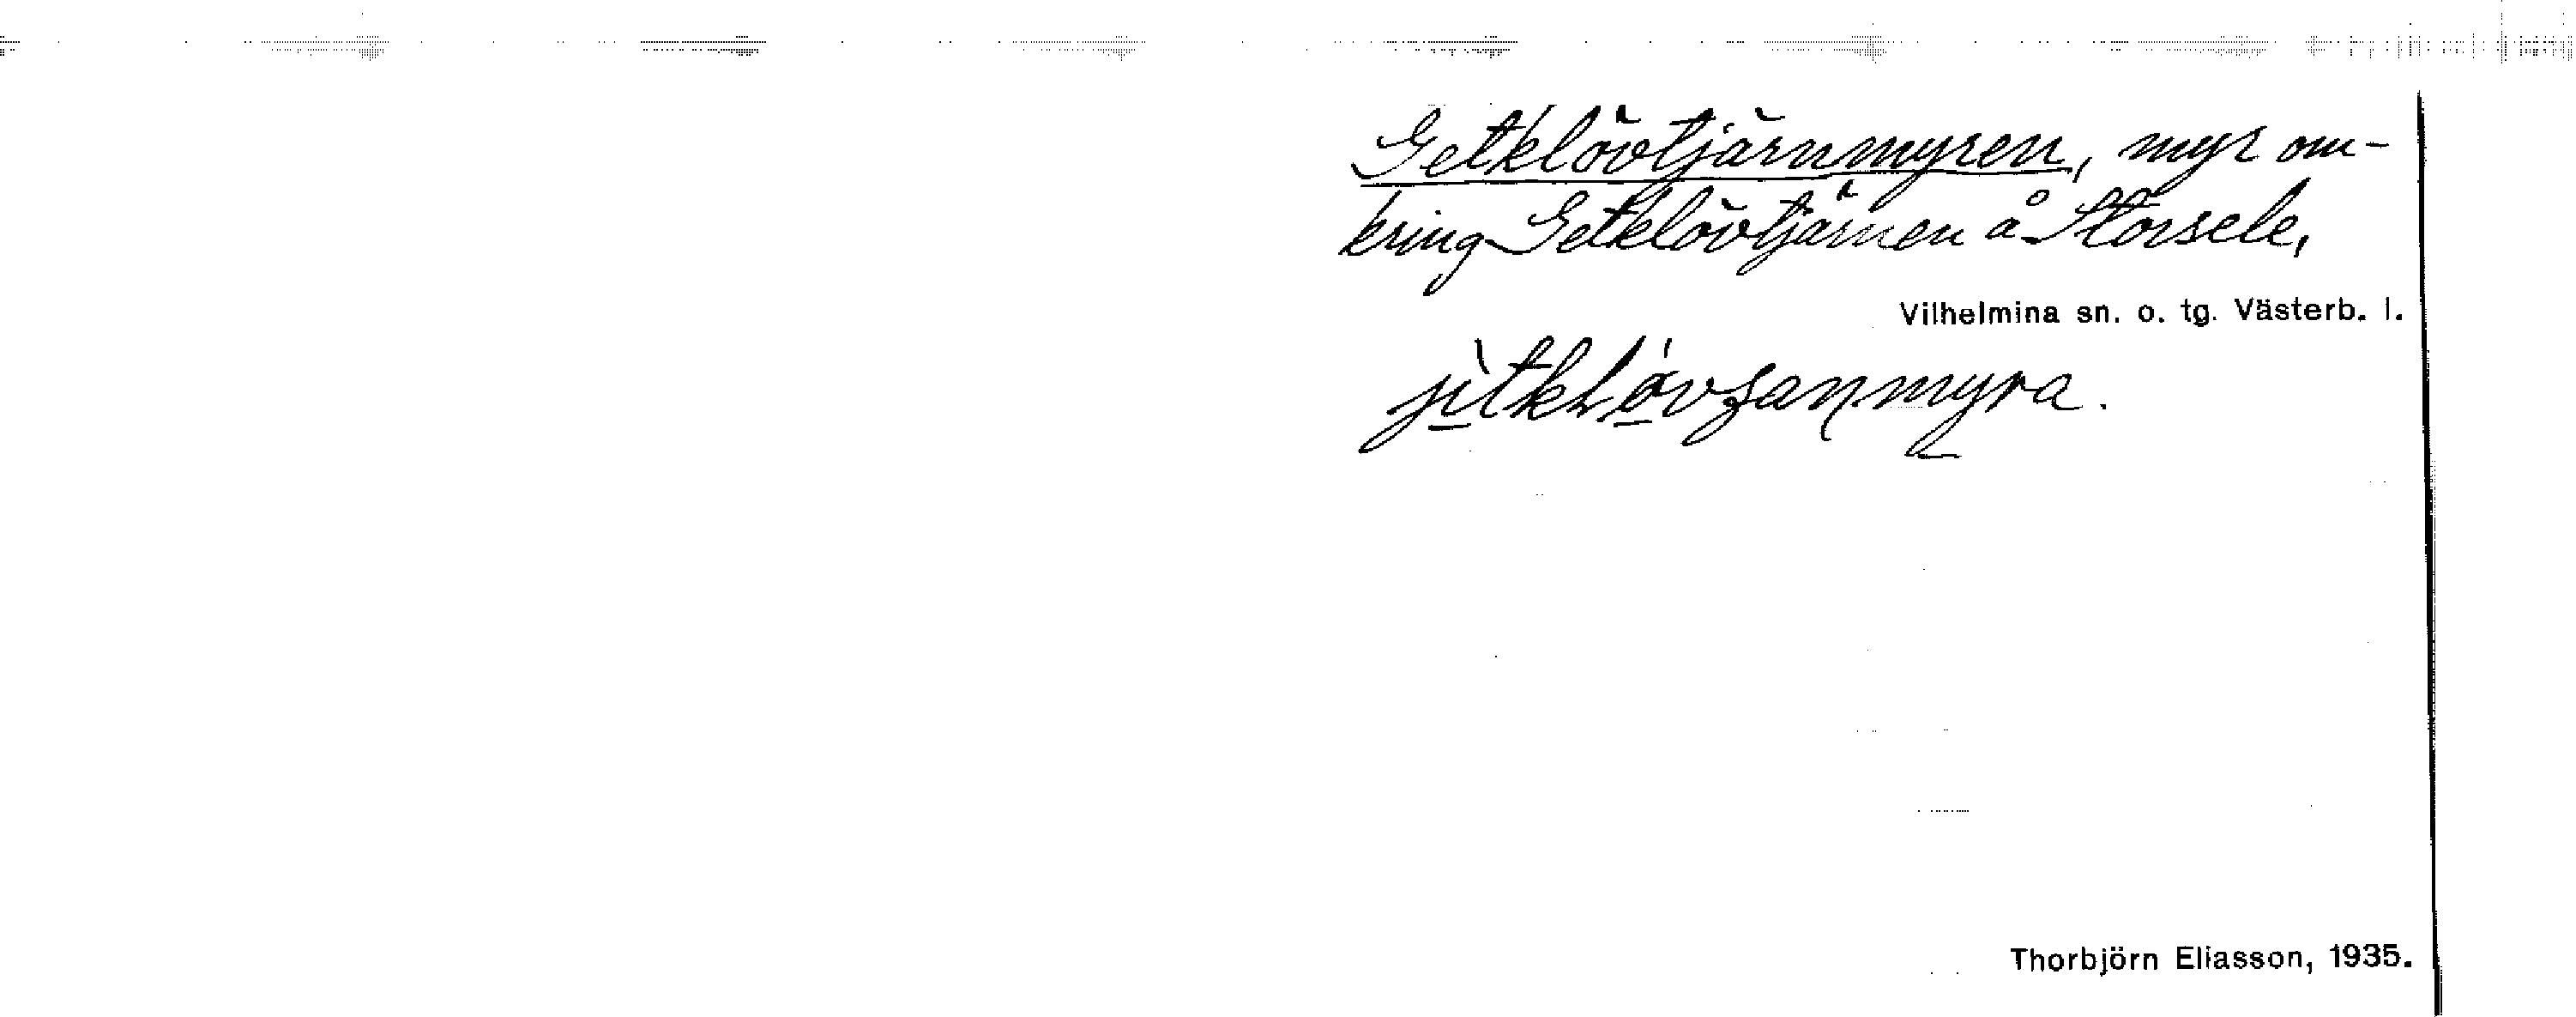 Getklövtjärnmyren, myr om-
kring Getklövtjärnen å Storsele,
Vilhelmina sn. o. tg. Västerb. l.
Thorbjörn Eliasson, 1935.